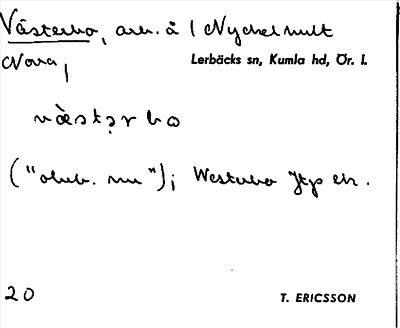 Västerbo, arr. å 1 Nyckelhult
Norra,
Lerbäcks sn, Kumla hd, Ör. l.
væstǝr bo
("obeb. nu"); Westerbo Jtp
20
T. ERICSSON